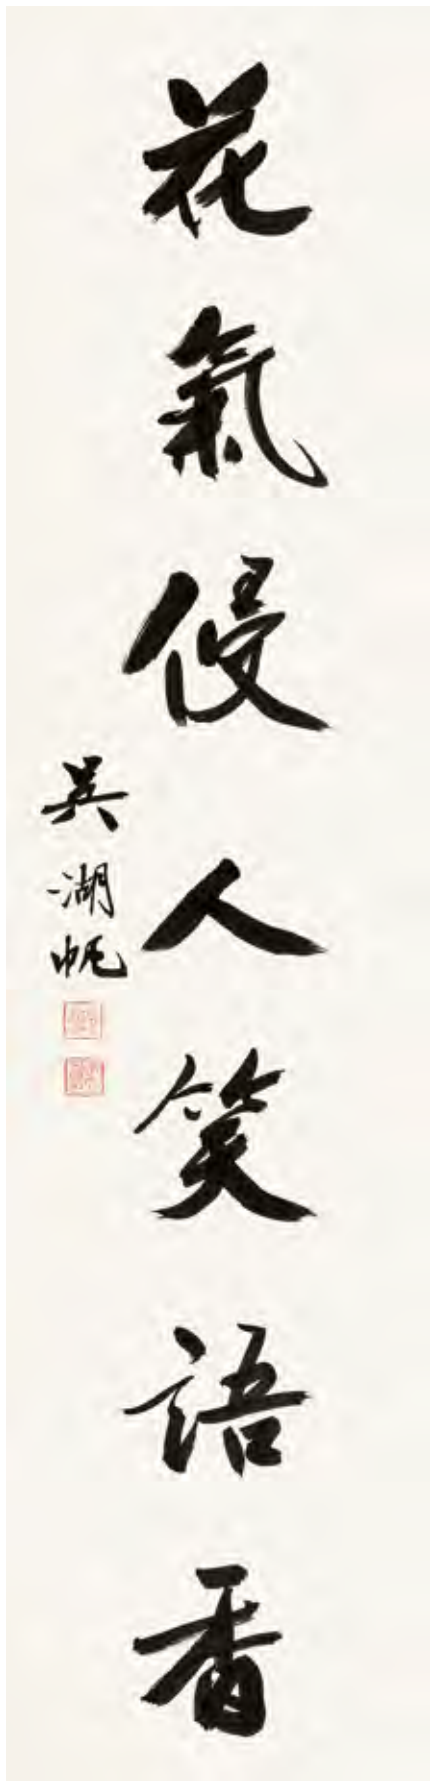 花氣侵人笑語香
吳湖帆